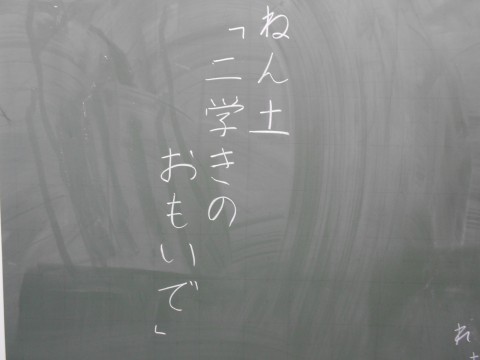 ねん土
「二学きの
おもいで」
ね